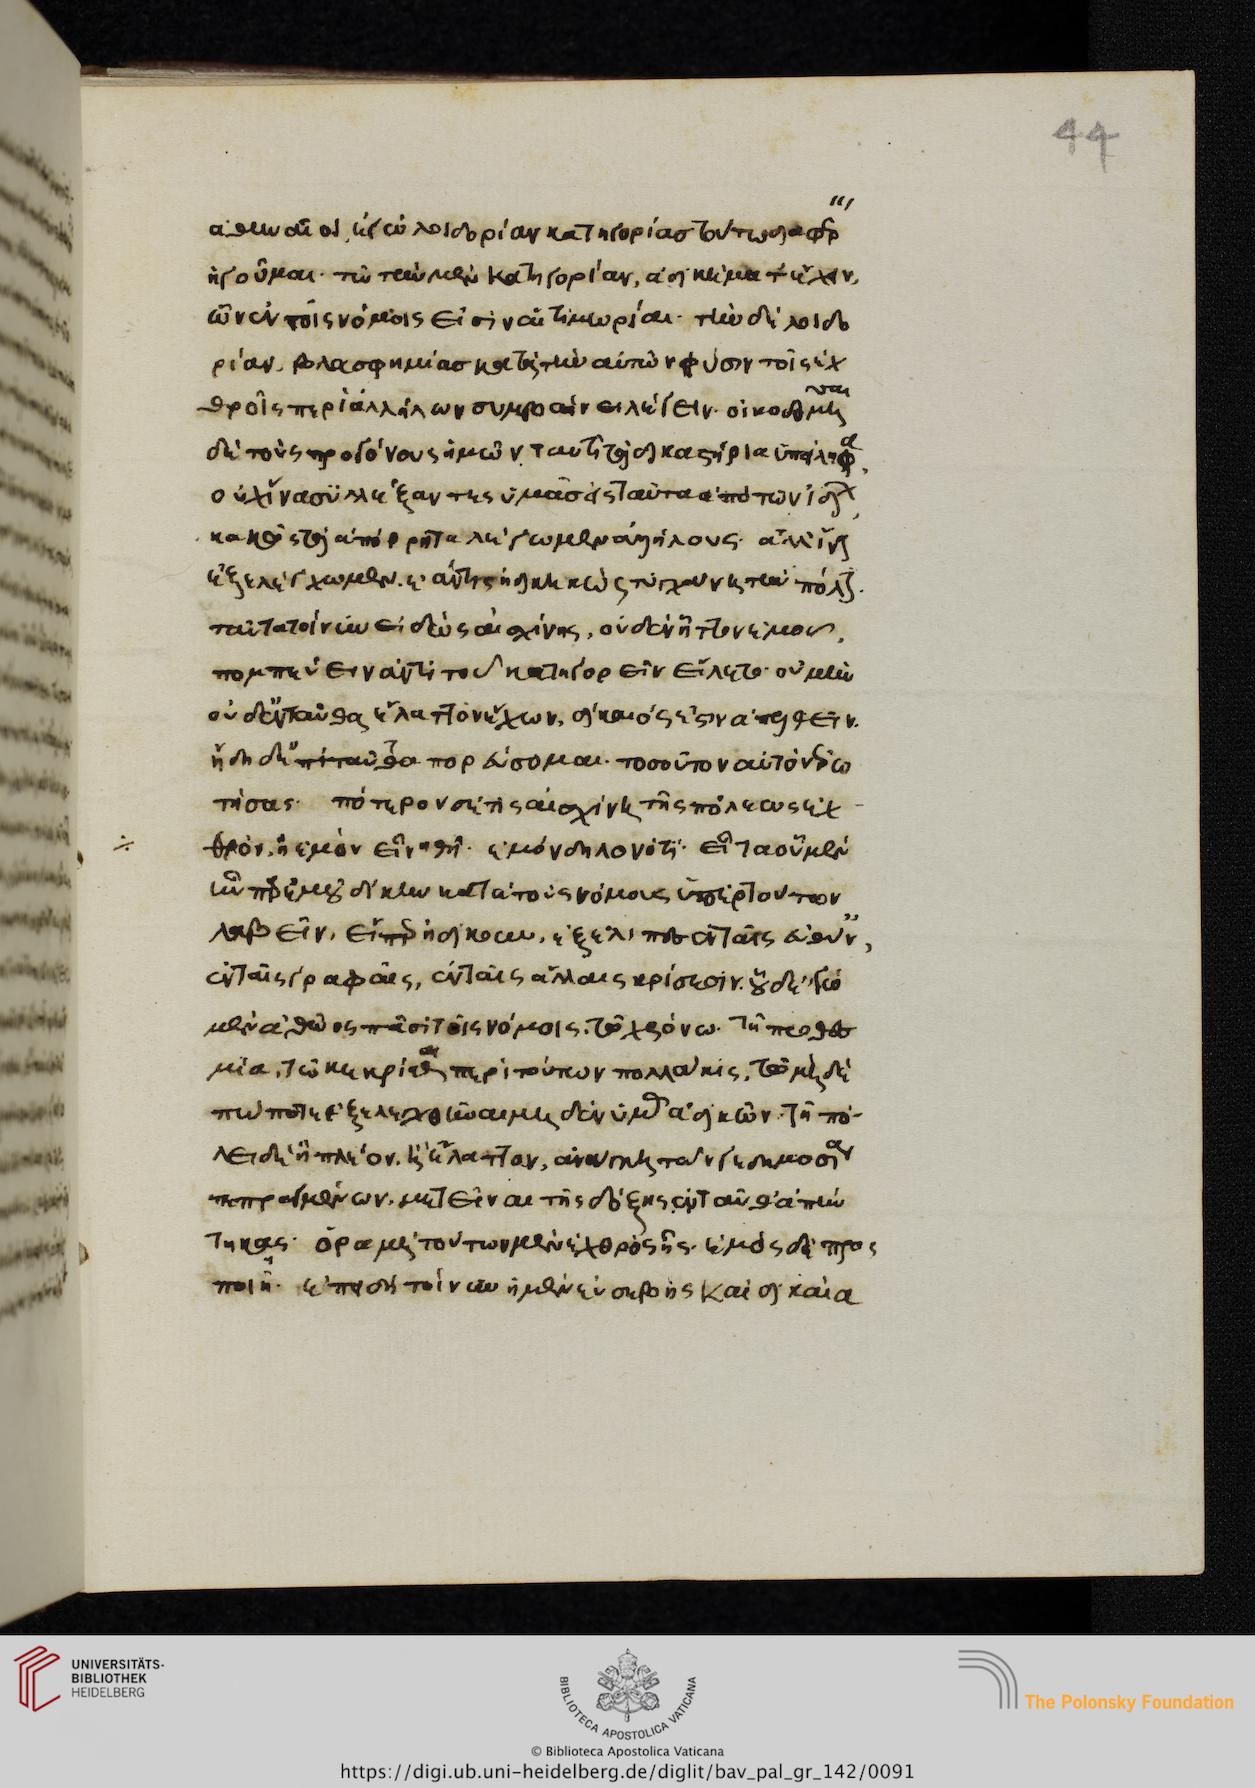 44
ἀθηναῖοι, ἐγὼ λοιδορίαν κατηγορίας τούτῳ διαφέρειν
ἡγοῦμαι· τῷ τὴν μὲν κατηγορίαν, ἀδικήματ' ἔχειν,
ὧν ἐν τοῖς νόμοις εἰσὶν αἱ τιμωρίαι· τὴν δὲ λοιδο
ρίαν, βλασφημίας κατὰ τὴν αὐτῶν φύσιν τοῖς ἐχ
θροῖς περὶ ἀλλήλων συμβαίνει λέγειν· οἰκοδομῆσαι
δὲ τοὺς προγόνους ἡμῶν ταυτὶ τὰ δικαστήρια ὑπείληφα,
οὐχ ἵνα συλλέξαντες ὑμᾶς εἰς ταῦτα ἀπὸ τῶν ἰδίων
κακῶς τὰ ἀπόρρητα λέγωμεν ἀλλήλους· ἀλλ' ἵνα
ἐξελέγχωμεν, ἐάν τις ἠδικηκώς τι τυγχάνῃ τὴν πόλιν·
ταῦτα τοίνυν εἰδὼς αἰσχίνης, οὐδὲν ἧττον ἐμοῦ,
πομπεύειν ἀντὶ τοῦ κατηγορεῖν εἵλετο· οὐ μὴν
οὐδ' ἐνταῦθα ἔλαττον ἔχων, δίκαιός ἐστιν ἀπελθεῖν·
ἤδη δ' ἐπὶ ταῦτα πορεύσομαι· τοσοῦτον αὐτὸν ἐρω
τήσας· πότερόν σέ τις αἰσχίνη τῆς πόλεως ἐχ
θρὸν, ἢ ἐμὸν εἶναι φῇ· ἐμὸν δηλονότι· εἶτα οὗ μὲν
ἦν παρ' ἐμοῦ δίκην κατὰ τοὺς νόμους ὑπὲρ τούτων
λαβεῖν, εἴπερ ἠδίκουν, ἐξέλιπες ἐν ταῖς εὐθύναις,
ἐν ταῖς γραφαῖς, ἐν ταῖς ἄλλαις κρίσεσιν· οὗ δ' ἐγὼ
μὲν ἀθῷος πᾶσι τοῖς νόμοις, τῷ χρόνῳ, τῇ προθεσ
μίᾳ, τῷ κεκρίσθαι περὶ τούτων πολλάκις, τῷ μηδὲ
πώποτε ἐξελεγχθῆναι μηδὲν ὑμᾶς ἀδικῶν· τῇ πό-
λει δ' ἢ πλέον, ἢ ἔλαττον, ἀνάγκη τῶν γε δημοσίᾳ
πεπραγμένων, μετεῖναι τῆς δόξης ἐνταῦθα ἀπήν
τηκας· ὅρα μὴ τούτων μὲν ἐχθρὸς ᾖς· ἐμὸς δὲ προς
ποιῇ· ἐπειδὴ τοίνυν ἡ μὲν εὐσεβὴς καὶ δικαία
UNIVERSITÄTS-
BIBLIOTHEK
HEIDELBERG
BIBLIOTECA APOSTOLICA VATICANA
The Polonsky Foundation
© Biblioteca Apostolica Vaticana
https://digi.ub.uni-heidelberg.de/diglit/bav_pal_gr_142/0091